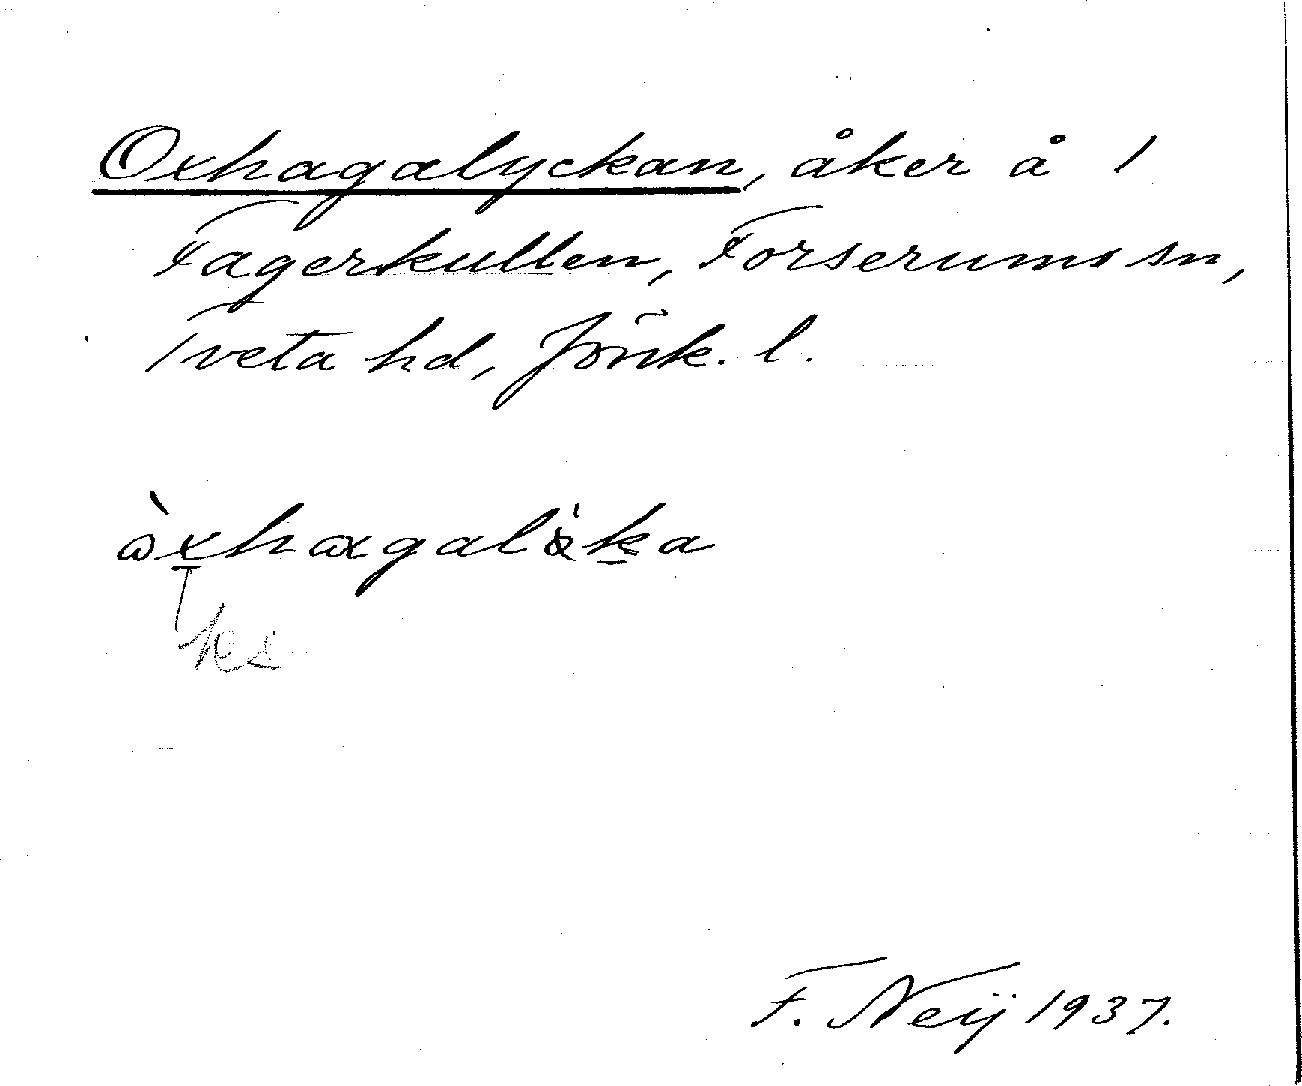 Oxhagalyckan, åker å 1
Fagerkullen, Forserums sn,
Tveta hd, Jönk. l.
ks
F. Neij 1937.